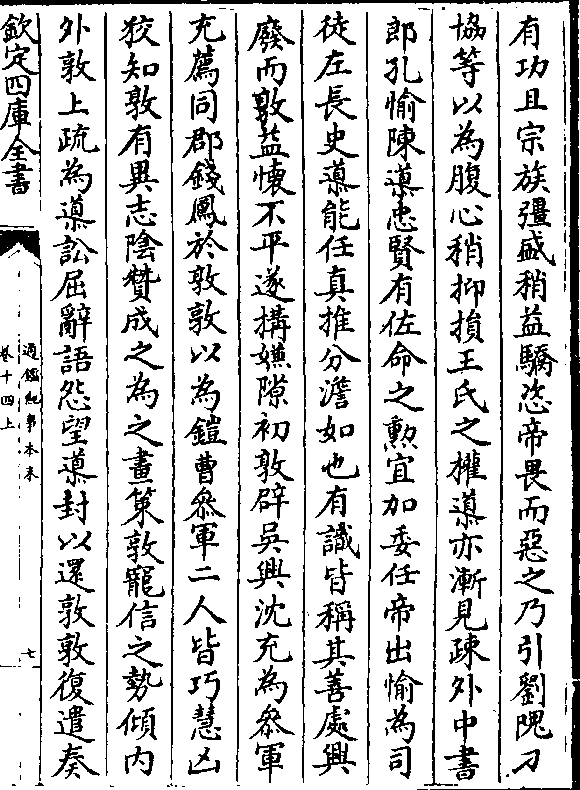 有功且宗族彊盛稍益驕恣帝畏而惡之乃引劉隗刁
協等以為腹心稍抑損王氏之權導亦漸見疎外中書
郎孔愉陳導忠賢有佐命之勲宜加委任帝出愉為司
徒左長史導能任真推分澹如也有識皆稱其善處興
廢而敦益懐不平遂搆嫌隙初敦辟吳興沈充為叅軍
充薦同郡錢鳳於敦敦以為鎧曹叅軍二人皆巧慧凶
狡知敦有異志陰贊成之為之畫策敦寵信之勢傾内
外敦上疏為導訟屈辭語怨望導封以還敦敦復遣奏
欽定四庫全書
通鑑紀事本末
卷十四上
七